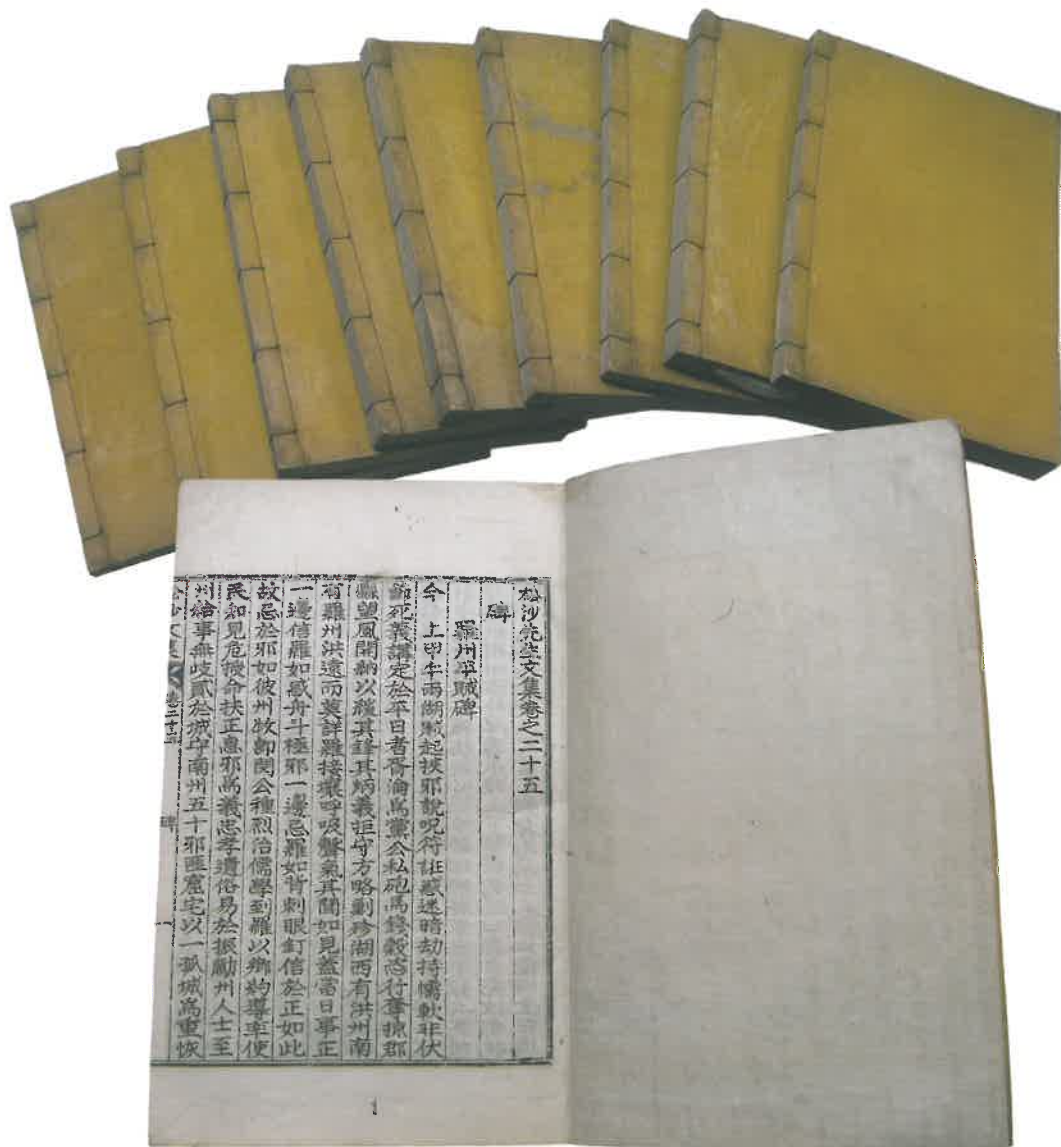 松沙先生文集卷之二十五
碑
羅州平賊碑
今 上甲午兩湖賊起挾邪說呪符誑惑迷暗劫持懦軟非伏
節死義講定於平日者胥淪爲黨公私砲馬錢穀恣行奪掠郡
縣望風開納以縱其鋒其炳義拒守方略剿殄湖西有洪州南
有羅州洪遠而莫詳羅接壤呼吸聲氣其關如見蓋當日事正
一邊信羅如惑舟斗極邪一邊忌羅如背刺眼釘信於正如此
故忌於邪如彼州牧卽閔公種烈治儒學到羅以鄕約導率使
民知見危授命扶正息邪爲義忠孝遺俗易於振勵州人士至
州給事無歧貳於城守南州五十邪匪窟宅以一孤城爲重恢
松沙文集 卷二十五 碑 一